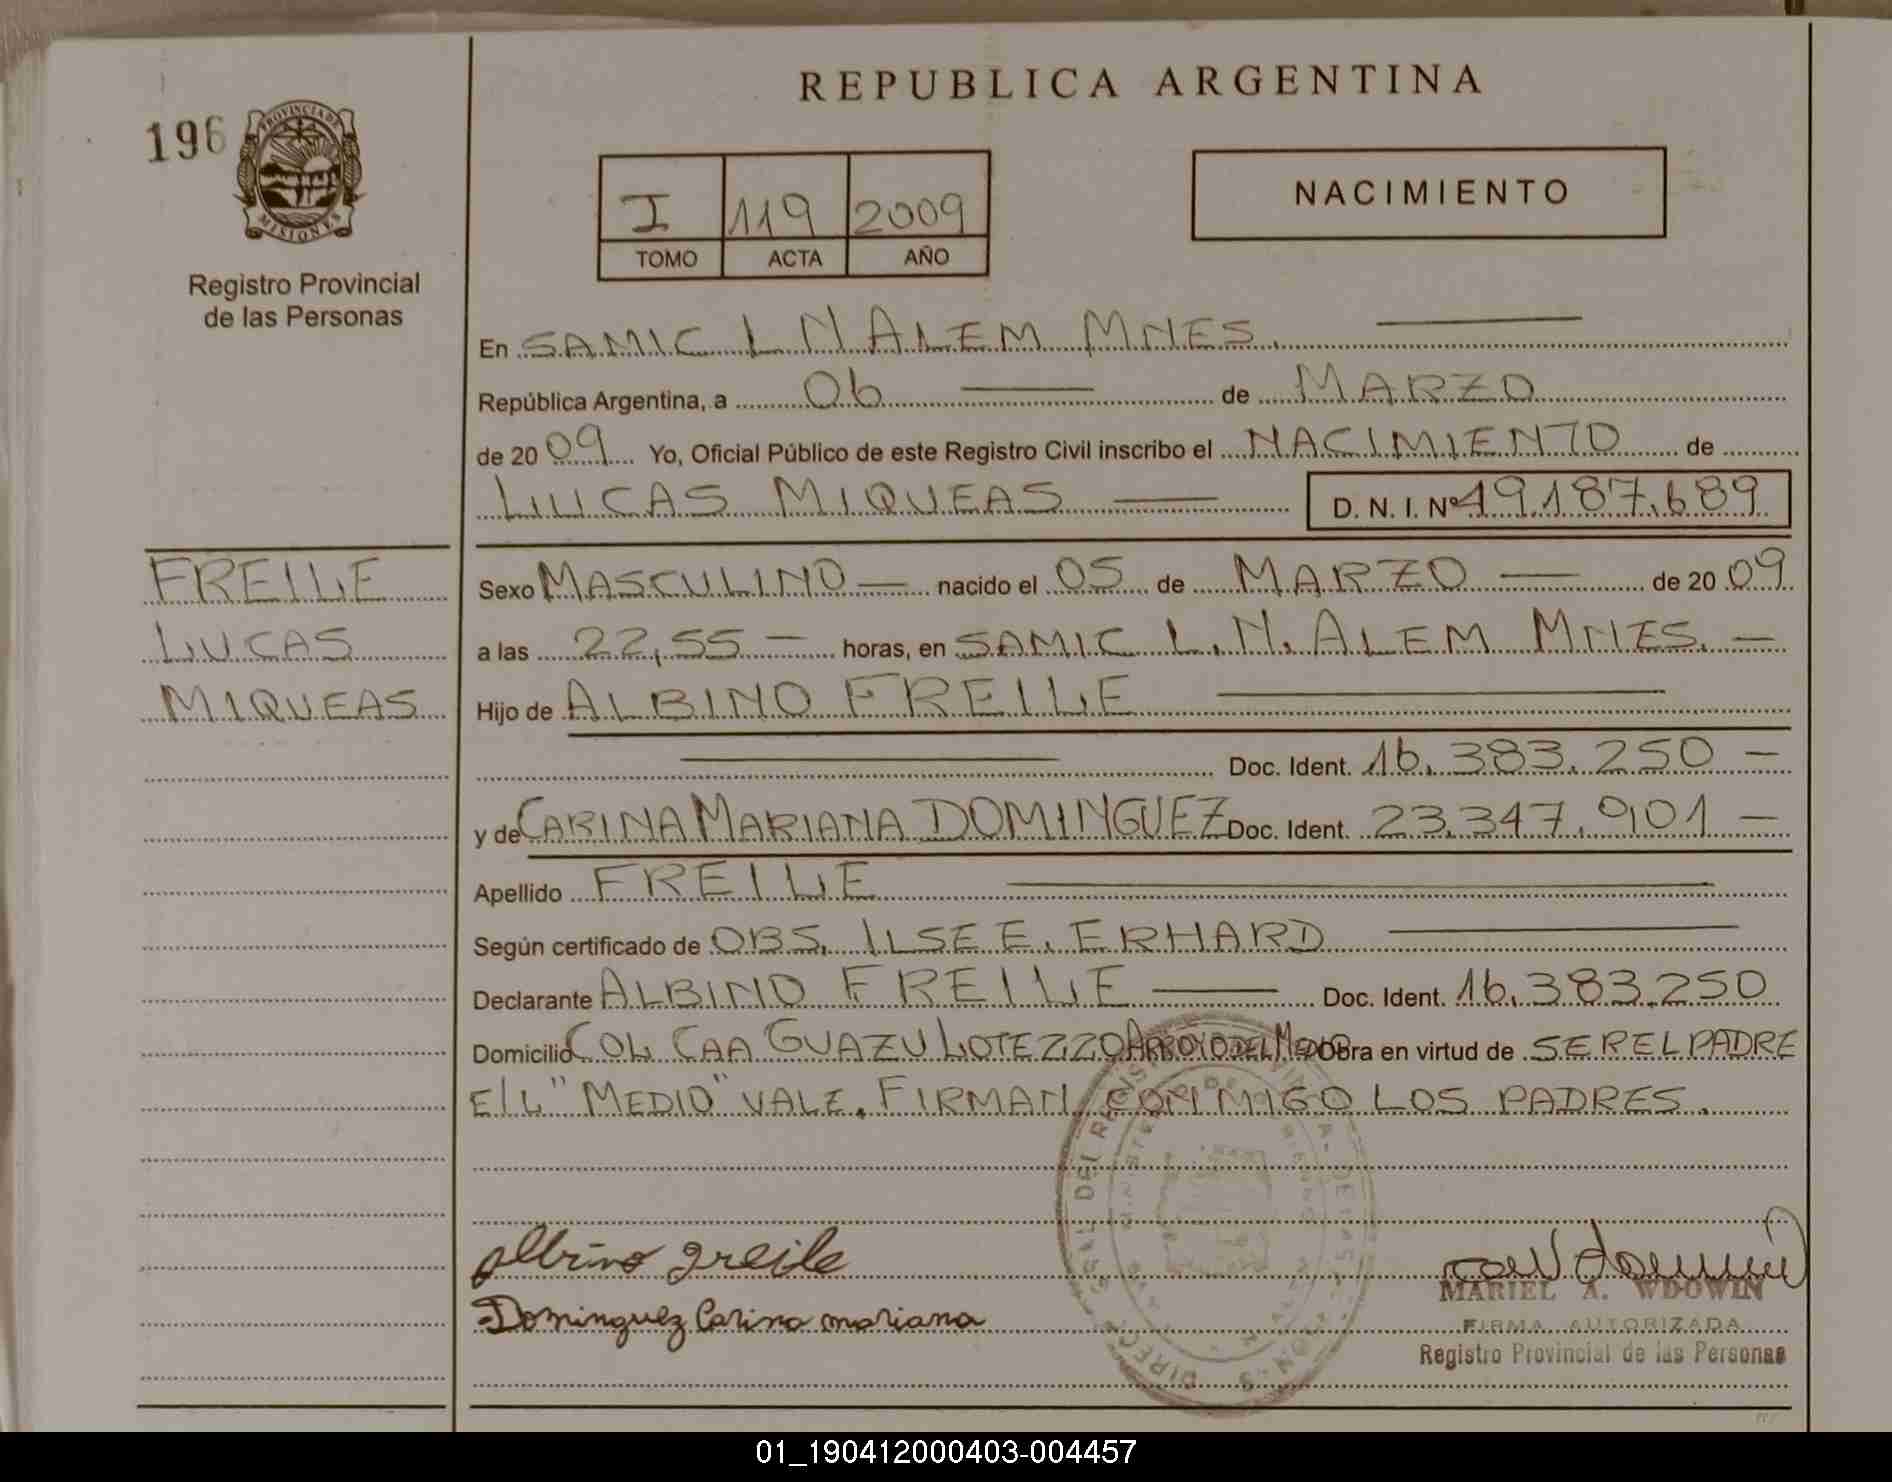 REPUBLICA ARGENTINA
196
PROVINCIA DE
MISIONES
Registro Provincial
de las Personas
I 119 2009
TOMO ACTA AÑO
NACIMIENTO
En SAMIC L N ALEM MNES.
República Argentina, a 06 de MARZO
de 2009 Yo, Oficial Público de este Registro Civil inscribo el NACIMIENTO de
LUCAS MIQUEAS D. N. I. Nº 49.187.689
FREILE
LUCAS
MIQUEAS
Sexo MASCULINO nacido el 05 de MARZO de 2009
a las 22,55 horas, en SAMIC L.N. ALEM MNES.
Hijo de ALBINO FREILE
Doc. Ident. 16.383.250
y de CARINA MARIANA DOMINGUEZ Doc. Ident. 23.347.901
Apellido FREILE
Según certificado de OBS. ILSE E. ERHARD
Declarante ALBINO FREILE Doc. Ident. 16.383.250
Domicilio COL CAA GUAZU LOTE 220 ARROYO DEL MEDIO Obra en virtud de SER EL PADRE
E/L "MEDIO" VALE. FIRMAN CONMIGO LOS PADRES.
Albino Freile
Dominguez Carina mariana
MARIEL A. WDOWIN
FIRMA AUTORIZADA
Registro Provincial de las Personas
01_190412000403-004457